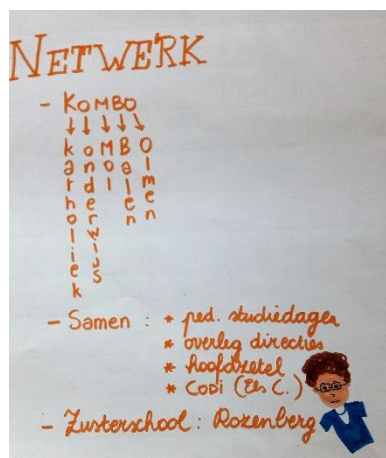 NETWERK
- KOMBO
katholiek
onderwijs
MOl
Balen
Olmen
- Samen : * ped. studiedagen
* overleg directies
* hoofdzetel
* Codi (Els C.)
- Zusterschool : Rozenberg